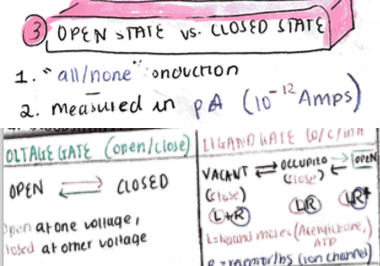 3 OPEN STATE VS. CLOSED STATE
1. "all/none" conduction
2. measured in pA (10-12 Amps)
VOLTAGE GATE (open/close)
OPEN ⇌ CLOSED
Open at one voltage,
closed at other voltage
LIGAND GATE (o/c/inn
VACANT ⇌ OCCUPIED ⇌ OPEN
(close) (close)
L+R LR LR*
L=ligand molec (Acetylcholine,
ATP
R = receptor/bs (ion channel)